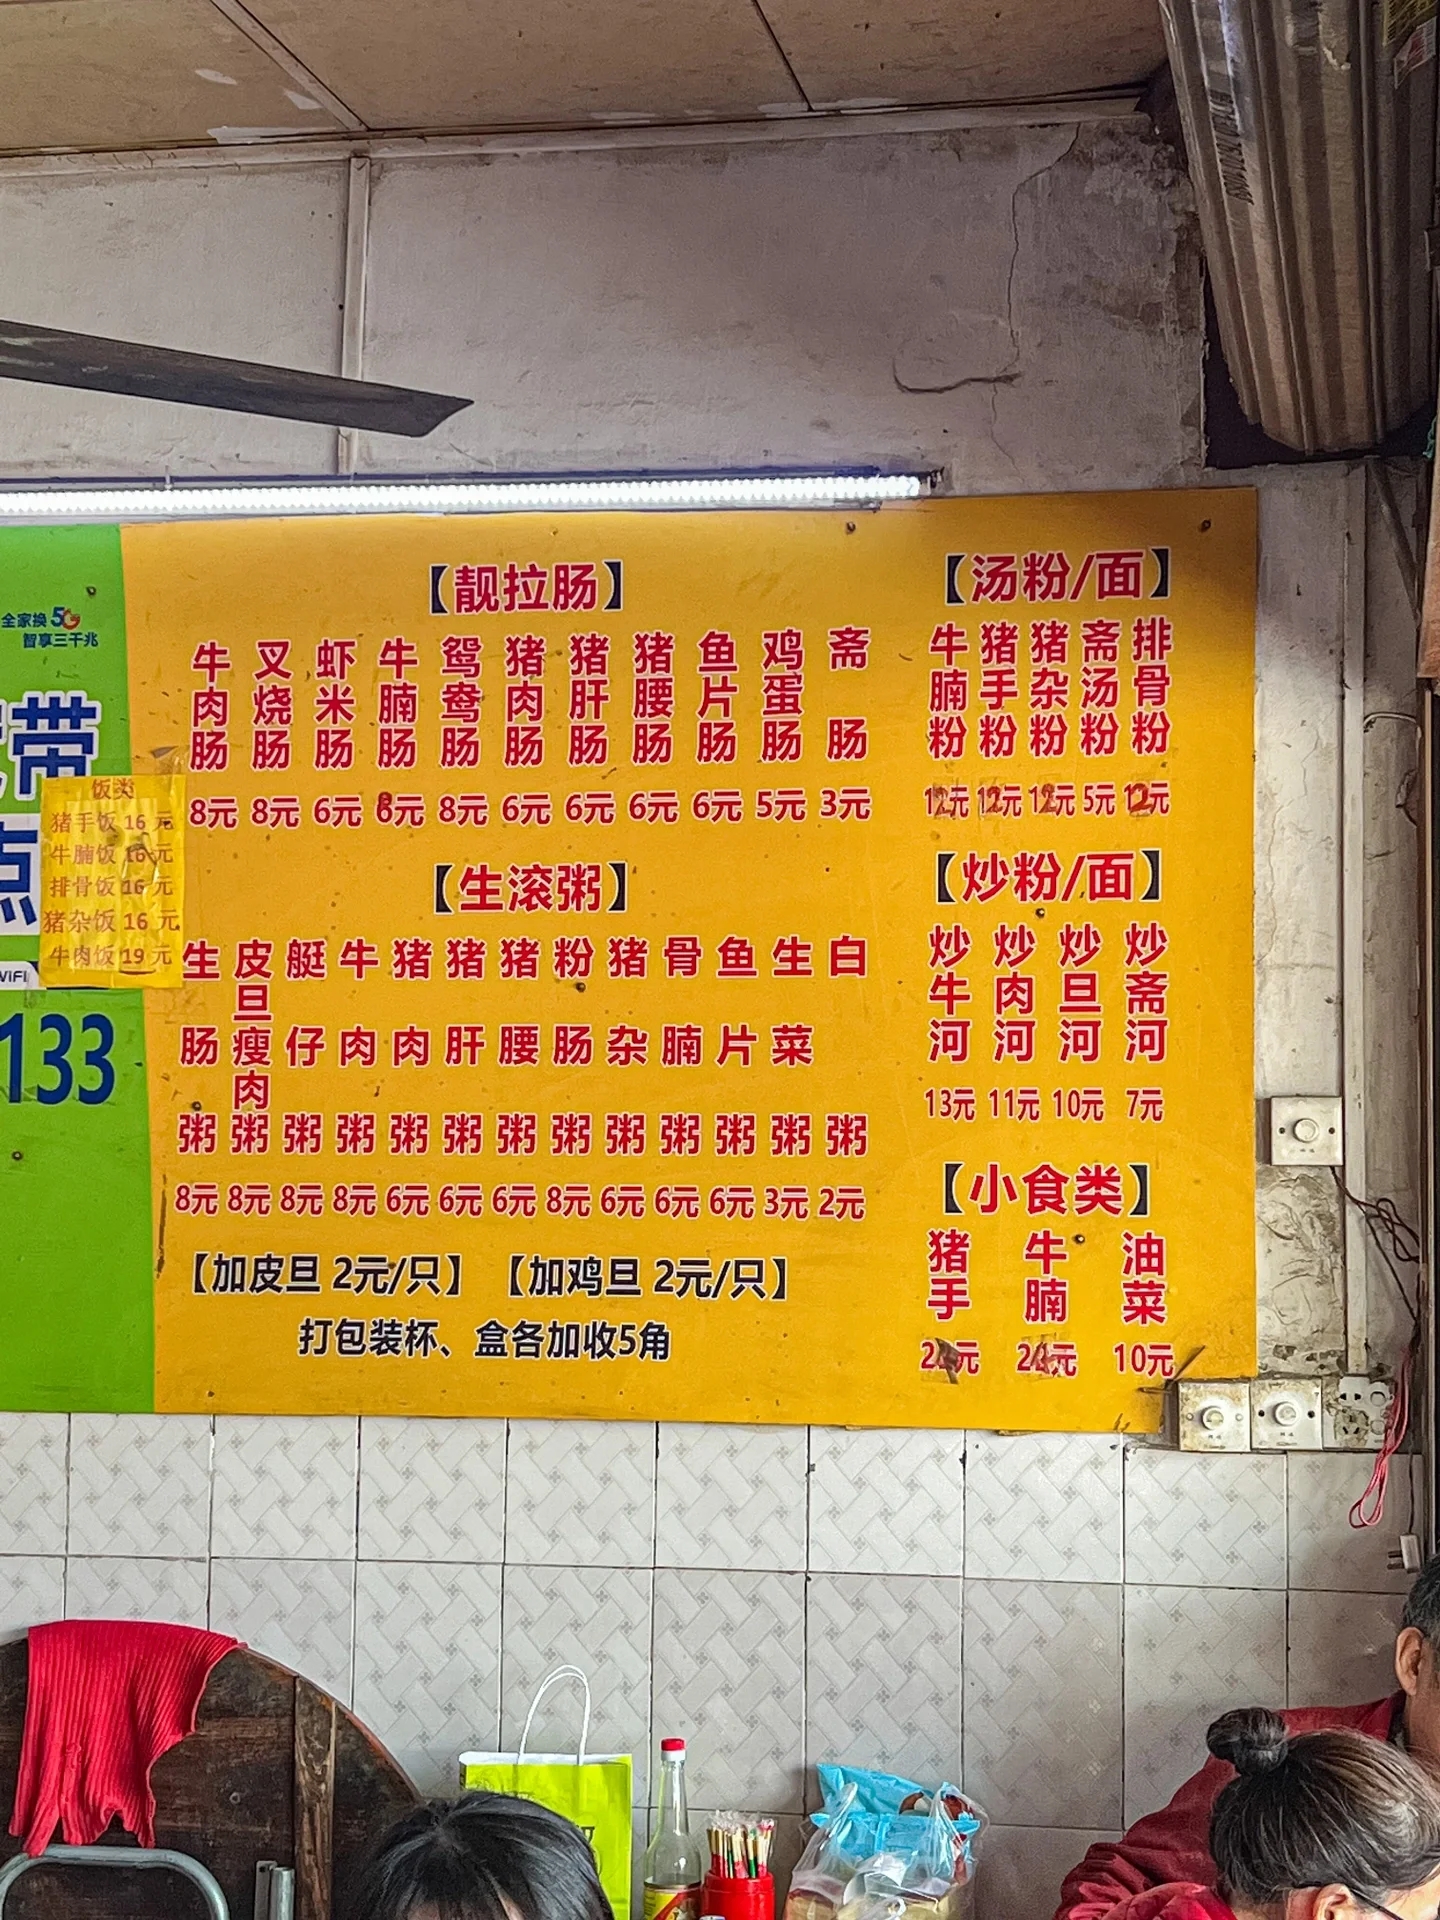 全家换5G
智享三千兆
带
点
WiFi
133
饭类
猪手饭 16 元
牛腩饭 16 元
排骨饭 16 元
猪杂饭 16 元
牛肉饭 19 元
【靓拉肠】
牛肉肠 8元
叉烧肠 8元
虾米肠 6元
牛腩肠 8元
鸳鸯肠 8元
猪肉肠 6元
猪肝肠 6元
猪腰肠 6元
鱼片肠 6元
鸡蛋肠 5元
斋肠 3元
【生滚粥】
生肠粥 8元
皮旦瘦肉粥 8元
艇仔粥 8元
牛肉粥 8元
猪肉粥 6元
猪肝粥 6元
猪腰粥 6元
粉肠粥 8元
猪杂粥 6元
骨腩粥 6元
鱼片粥 6元
生菜粥 3元
白粥 2元
【加皮旦 2元/只】 【加鸡旦 2元/只】
打包装杯、盒各加收5角
【汤粉/面】
牛腩粉 12元
猪手粉 12元
猪杂粉 12元
斋汤粉 5元
排骨粉 12元
【炒粉/面】
炒牛河 13元
炒肉河 11元
炒旦河 10元
炒斋河 7元
【小食类】
猪手 元
牛腩 元
油菜 10元